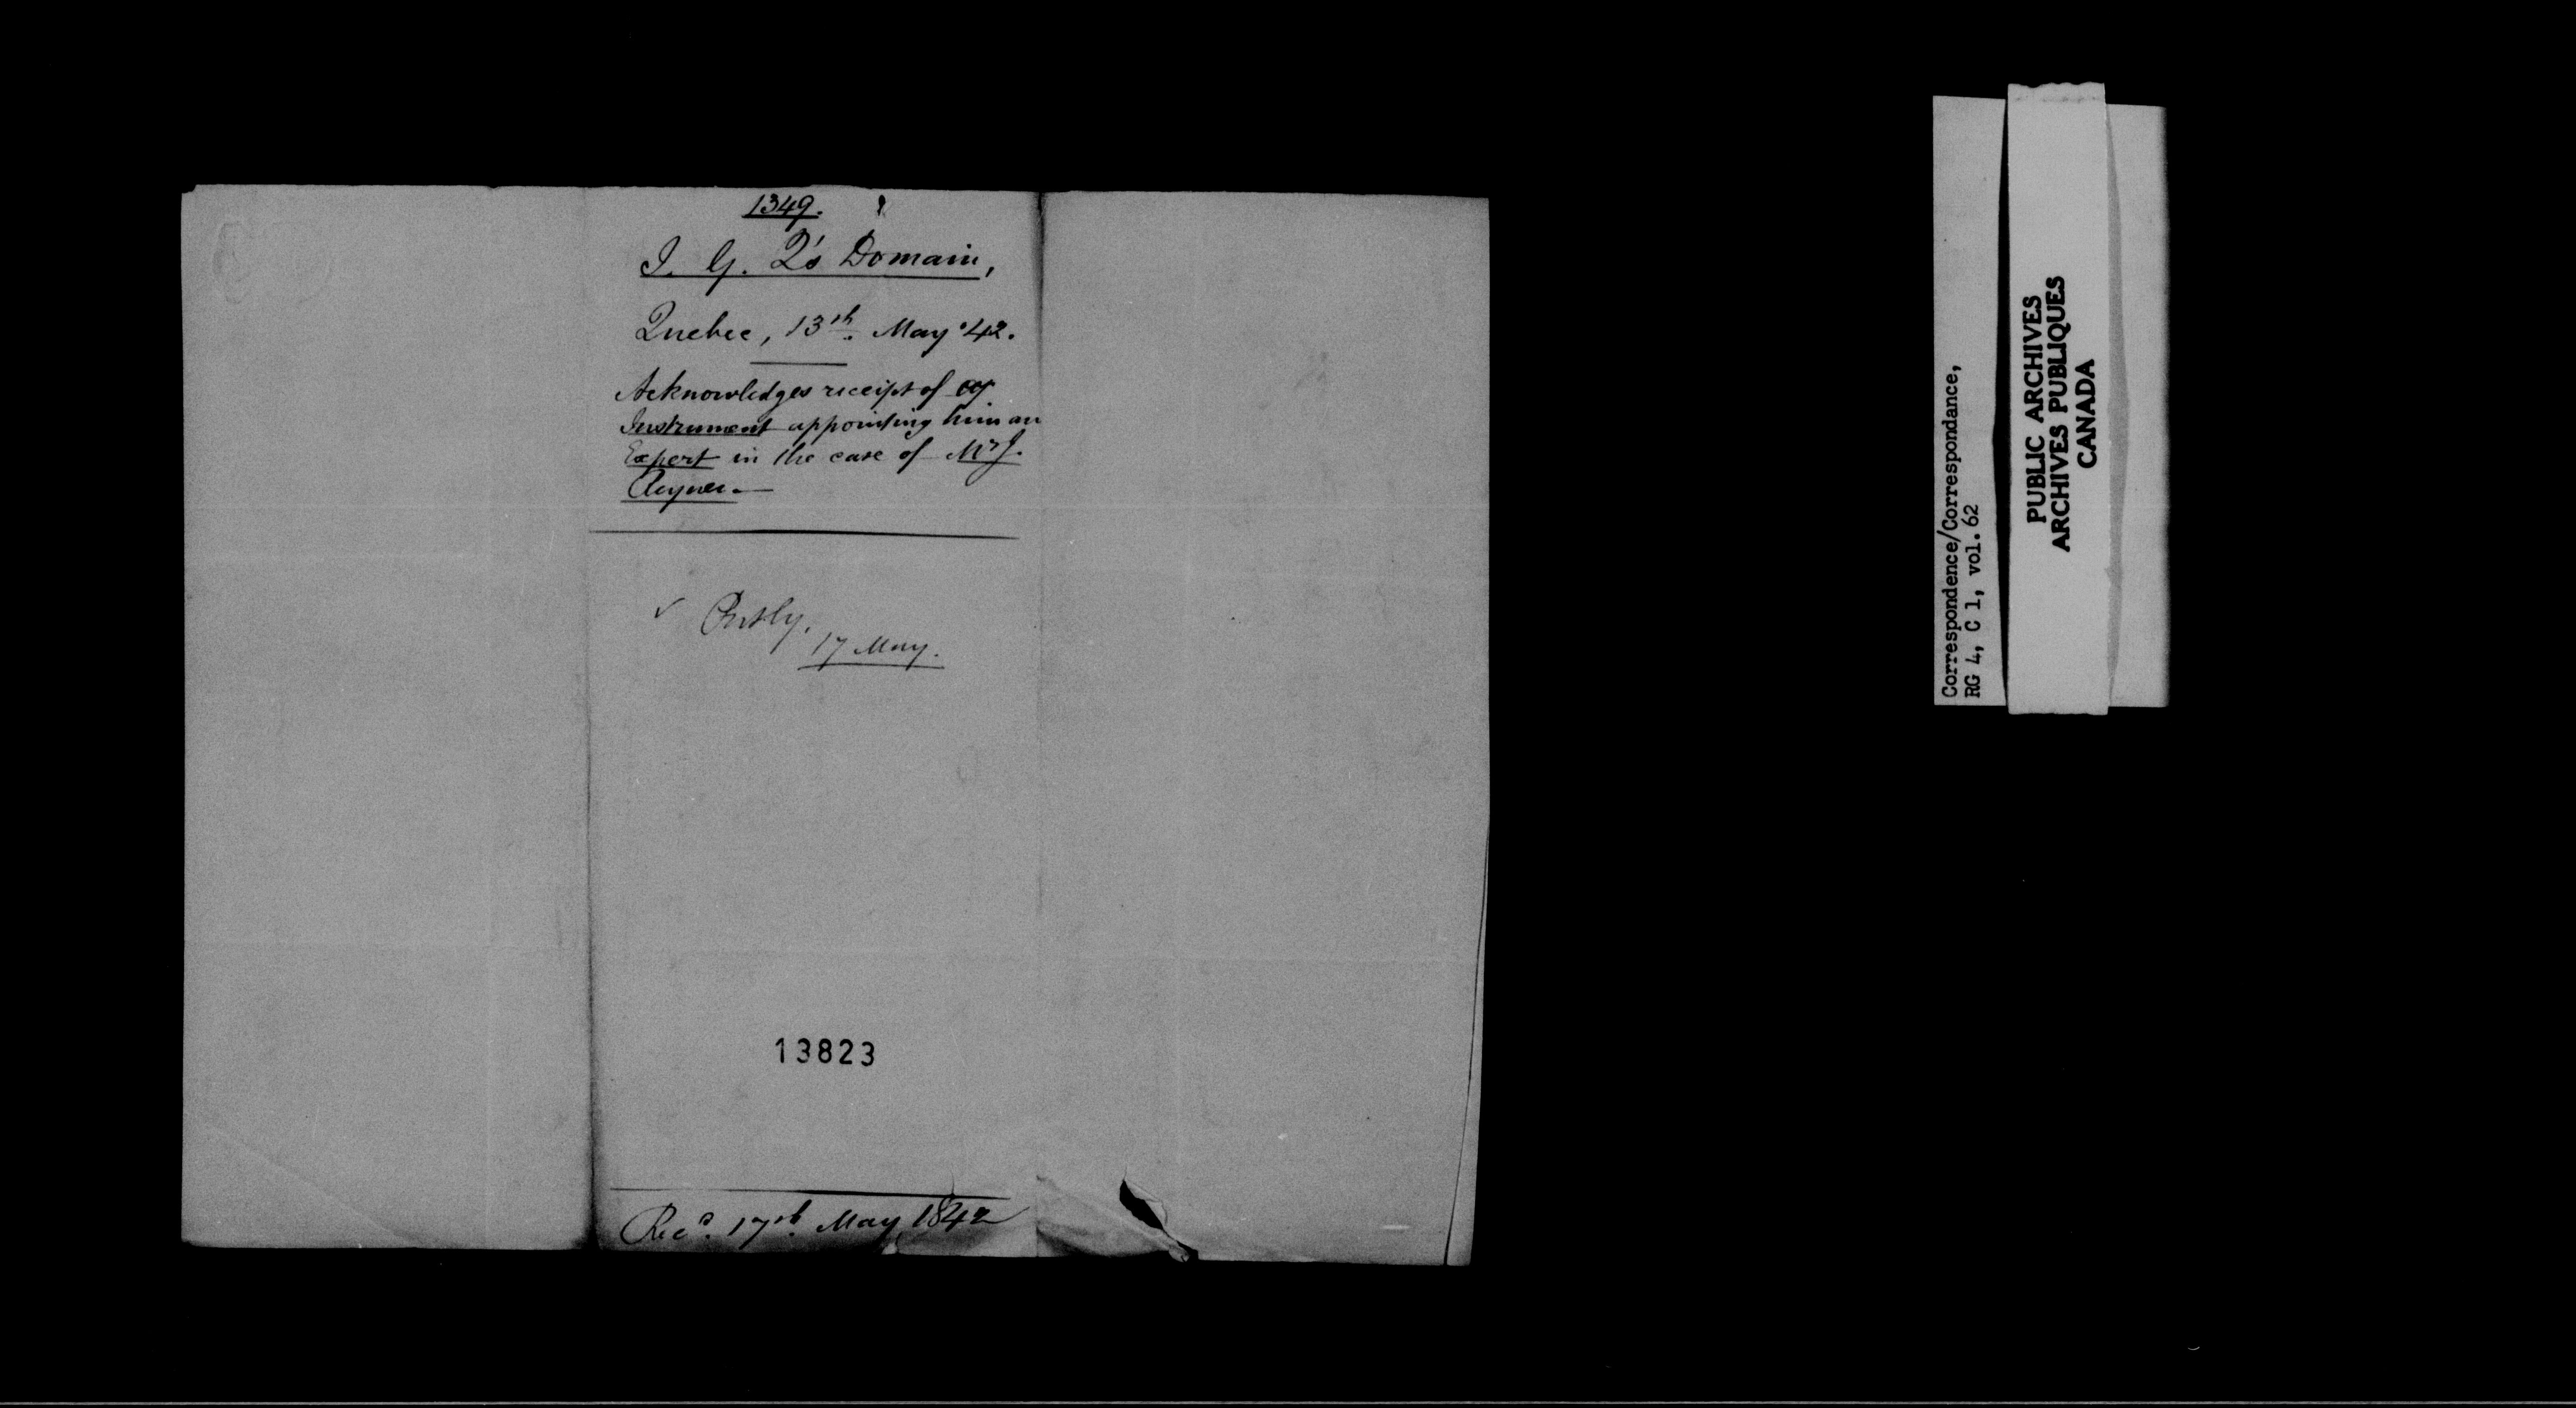 1349.
I. G. Q's Domain,
Quebec, 13th. May '42.
Acknowledges receipt of
Instrument appointing him an
Expert in the case of Mr J.
17 May.
13823
Recd. 17th. May, 1842
Correspondence/Correspondance,
RG 4, C 1, vol. 62
PUBLIC ARCHIVES
ARCHIVES PUBLIQUES
CANADA